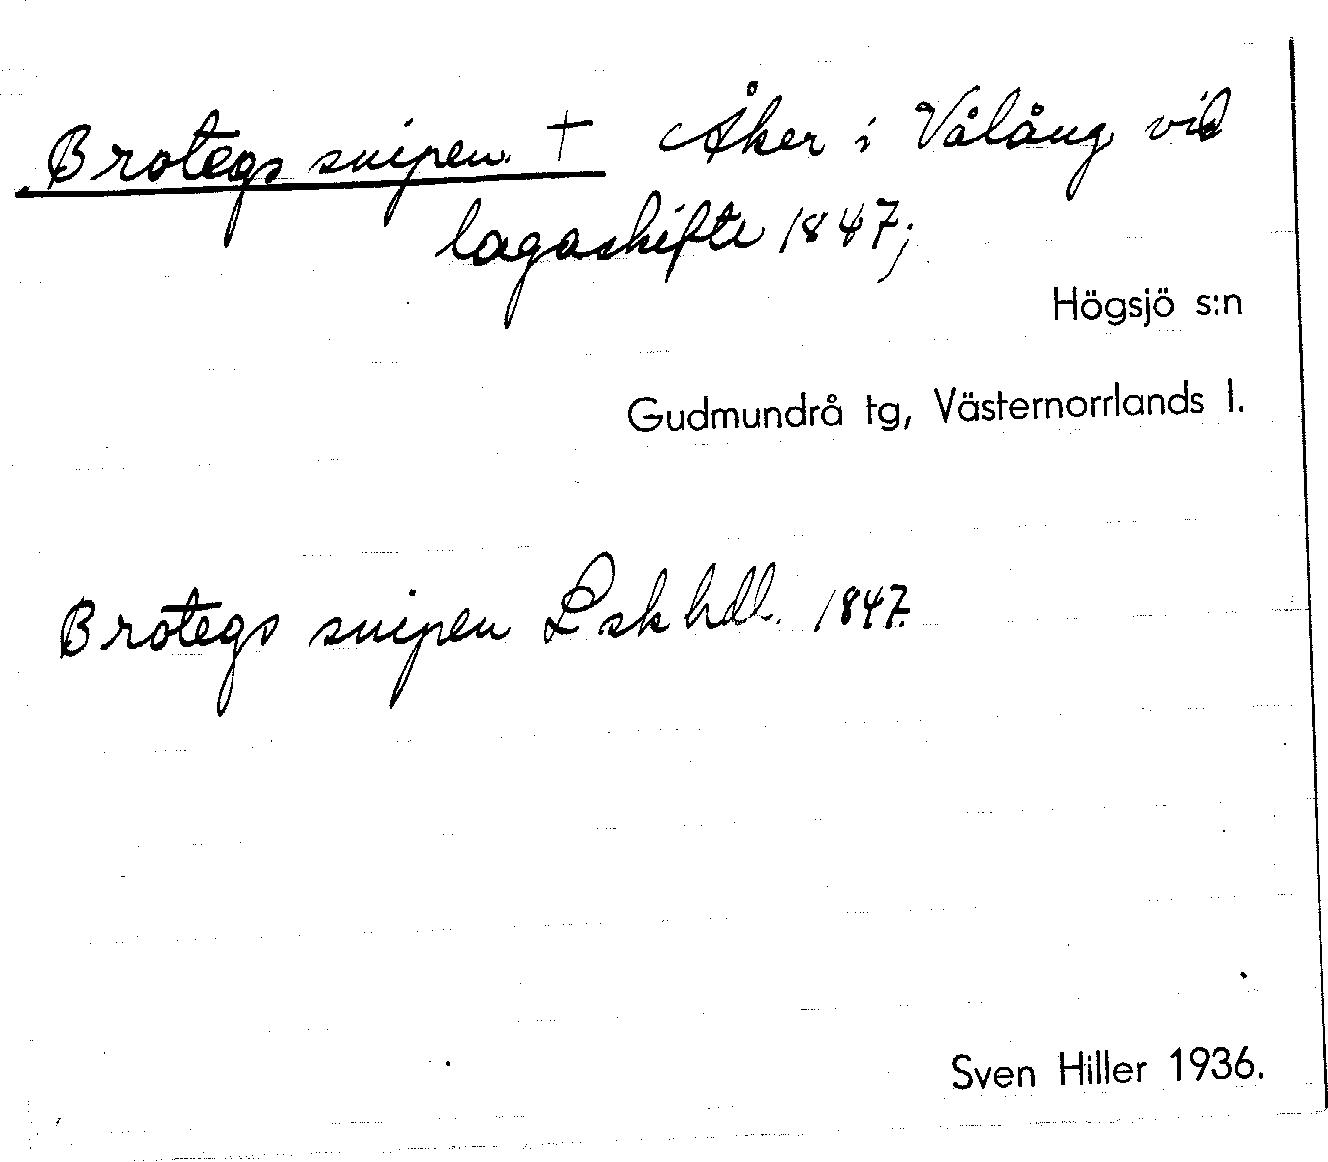 Brotegs snipen. † Åker i Vålång vid
lagaskifte 1847;
Högsjö s:n
Gudmundrå tg, Västernorrlands l.
Brotegs snipen Lskhdl. 1847.
Sven Hiller 1936.